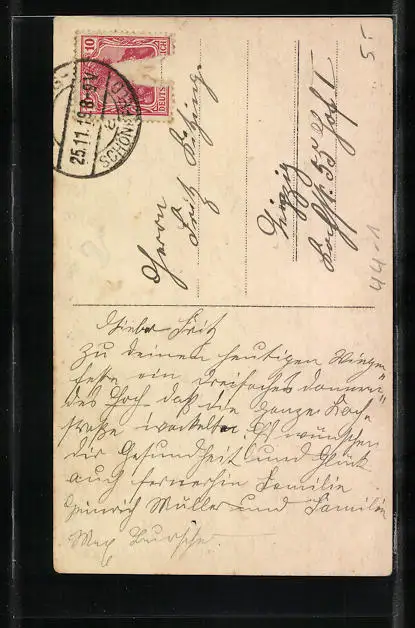 5.-
10
DEUTSCHES REICH
25.11.19.8-9V
SCHÖN
Herrn
Fritz
Leipzig
44-1
Lieber Fritz
Zu deinem heutigen Wiegen=
feste ein dreifaches donnern=
des Hoch daß die ganze Koch=
straße wackelte. Es wünschen
dir Gesundheit und Glück
auch fernerhin Familie
Heinrich Müller und Familie
Max